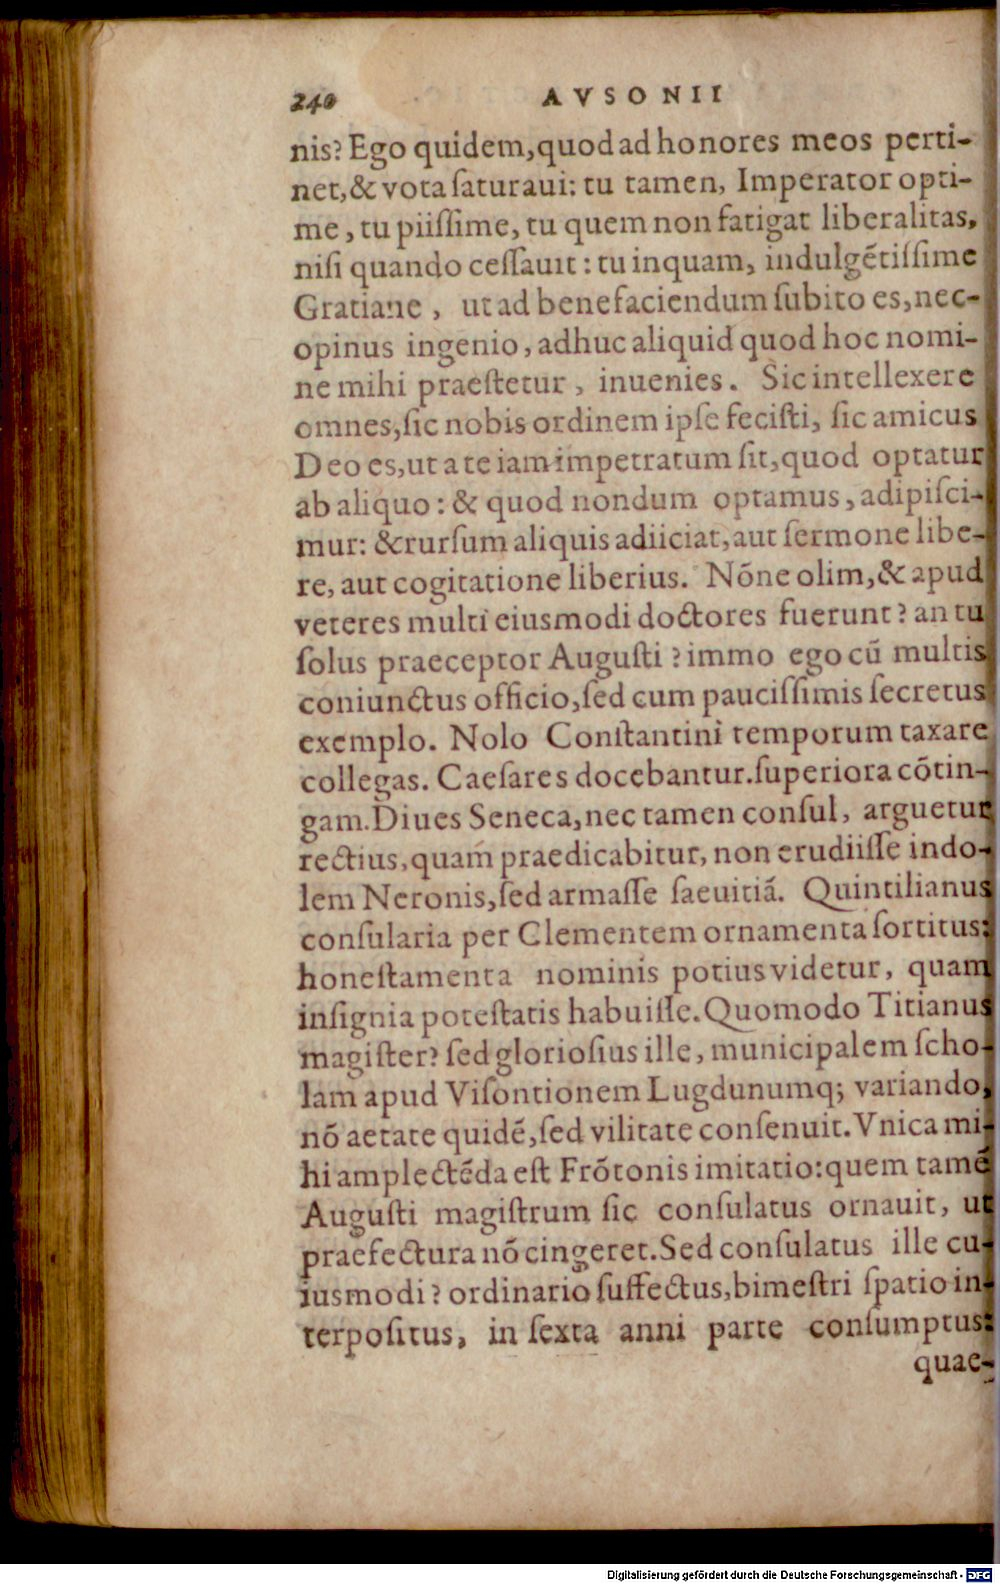 240 AVSONII
nis? Ego quidem, quod ad honores meos perti-
net, & vota saturaui: tu tamen, Imperator opti-
me, tu piissime, tu quem non fatigat liberalitas,
nisi quando cessauit: tu inquam, indulgētissime
Gratiane, ut ad benefaciendum subito es, nec-
opinus ingenio, adhuc aliquid quod hoc nomi-
ne mihi praestetur, inuenies. Sic intellexere
omnes, sic nobis ordinem ipse fecisti, sic amicus
Deo es, ut a te iam impetratum sit, quod optatur
ab aliquo: & quod nondum optamus, adipisci-
mur: & rursum aliquis adiiciat, aut sermone libe-
re, aut cogitatione liberius. Nōne olim, & apud
veteres multi eiusmodi doctores fuerunt? an tu
solus praeceptor Augusti? immo ego cū multis
coniunctus officio, sed cum paucissimis secretus
exemplo. Nolo Constantini temporum taxare
collegas. Caesares docebantur. superiora cōtin-
gam. Diues Seneca, nec tamen consul, arguetur
rectius, quam praedicabitur, non erudiisse indo-
lem Neronis, sed armasse saeuitiā. Quintilianus
consularia per Clementem ornamenta sortitus:
honestamenta nominis potius videtur, quam
insignia potestatis habuisse. Quomodo Titianus
magister? sed gloriosius ille, municipalem scho-
lam apud Visontionem Lugdunumq; variando,
nō aetate quidē, sed vilitate consenuit. Vnica mi-
hi amplectēda est Frōtonis imitatio: quem tamē
Augusti magistrum sic consulatus ornauit, ut
praefectura nō cingeret. Sed consulatus ille cu-
iusmodi? ordinario suffectus, bimestri spatio in-
terpositus, in sexta anni parte consumptus:
quae-
Digitalisierung gefördert durch die Deutsche Forschungsgemeinschaft - DFG